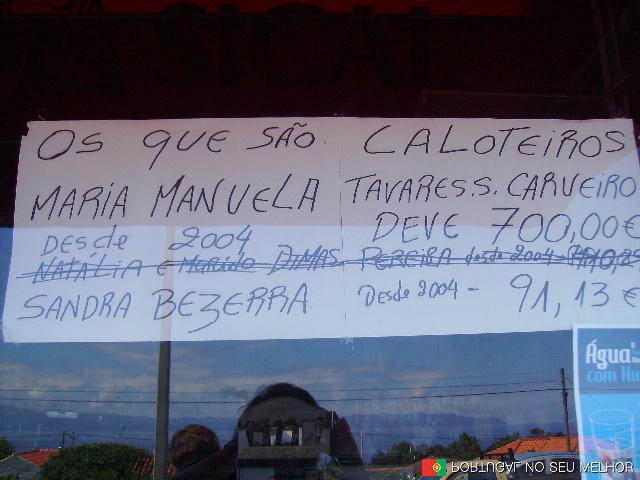 OS QUE SÃO CALOTEIROS
MARIA MANUELA TAVARES.S. CARVEIRO
DESde 2004 DEVE 700,00€
NATÁLIA e Marido DIMAS PEREIRA desde 2004 -
SANDRA BEZERRA Desde 2004 - 91,13 €
Água
com Hu
PORTUGAL NO SEU MELHOR